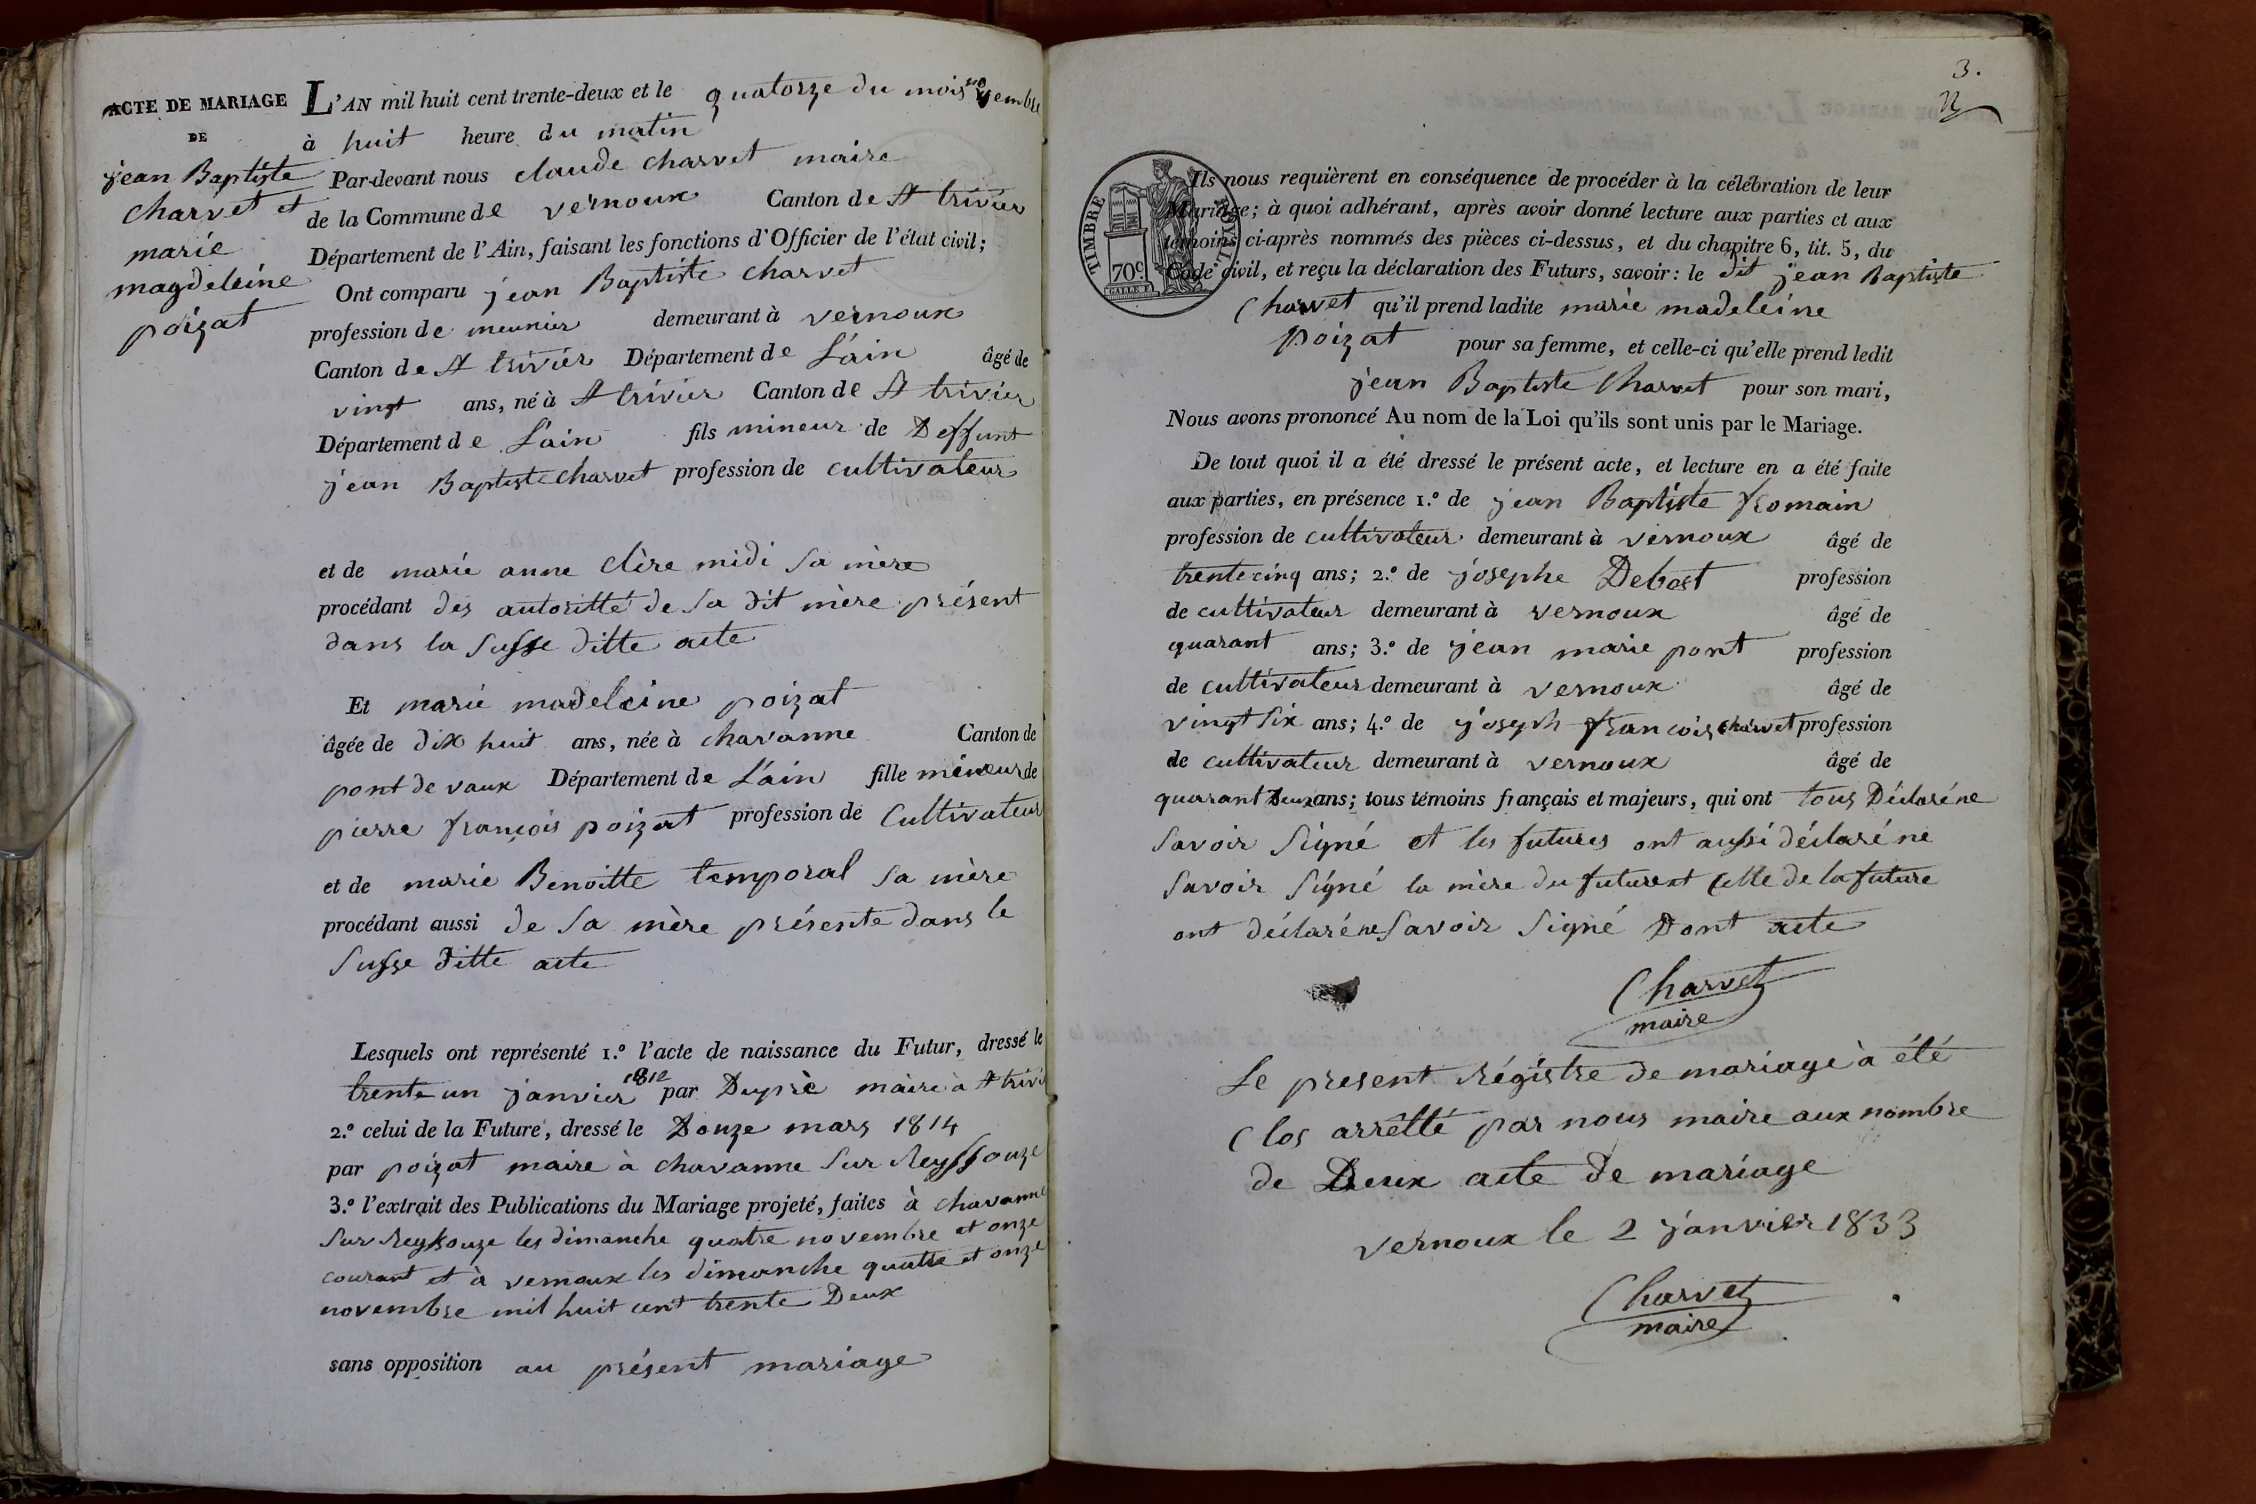 ACTE DE MARIAGE
DE
jean Baptiste
charvet et
marie
magdeleine
poizat
L'AN mil huit cent trente-deux et le quatorze du mois novembre
à huit heure du matin
Par-devant nous claude charvet maire
de la Commune de vernoux Canton de St trivier
Département de l'Ain, faisant les fonctions d'Officier de l'état civil;
Ont comparu jean Baptiste charvet
profession de meunier demeurant à vernoux
Canton de St trivier Département de L'ain âgé de
vingt ans, né à St trivier Canton de St trivier
Département de L'ain fils mineur de Deffunt
jean Baptiste charvet profession de cultivateur
et de marie anne clère midi sa mère
procédant des autoritté de sa dit mère présent
dans la susse ditte acte
Et marie madeleine poizat
âgée de dix huit ans, née à chavanne Canton de
pont de vaux Département de L'ain fille mineur de
pierre françois poizat profession de Cultivateur
et de marie Benoitte temporal sa mère
procédant aussi de sa mère présente dans le
susse ditte acte
Lesquels ont représenté 1.º l'acte de naissance du Futur, dressé le
trente un janvier 1812 par Dupré maire à St trivi
2.º celui de la Future, dressé le Douze mars 1814
par poizat maire à chavanne sur Reyssouze
3.º l'extrait des Publications du Mariage projeté, faites à chavanne
sur Reyssouze les dimanche quatre novembre et onze
courant et à vernoux les dimanche quatre et onze
novembre mil huit cent trente Deux
sans opposition au présent mariage
3.
TIMBRE ROYAL
70c.
Ils nous requièrent en conséquence de procéder à la célébration de leur
Mariage; à quoi adhérant, après avoir donné lecture aux parties et aux
témoins ci-après nommés des pièces ci-dessus, et du chapitre 6, tit. 5, du
Code civil, et reçu la déclaration des Futurs, savoir: le dit jean Baptiste
Charvet qu'il prend ladite marie madeleine
poizat pour sa femme, et celle-ci qu'elle prend ledit
jean Baptiste Charvet pour son mari,
Nous avons prononcé Au nom de la Loi qu'ils sont unis par le Mariage.
De tout quoi il a été dressé le présent acte, et lecture en a été faite
aux parties, en présence 1.º de jean Baptiste fromain
profession de cultivateur demeurant à vernoux âgé de
trente cinq ans; 2.º de josephe Debost profession
de cultivateur demeurant à vernoux âgé de
quarant ans; 3.º de jean marie pont profession
de cultivateur demeurant à vernoux âgé de
vingt six ans; 4.º de joseph françois charvet profession
de cultivateur demeurant à vernoux âgé de
quarant Deux ans; tous témoins français et majeurs, qui ont tous Déclaré ne
savoir signé et les futures ont aussi déclaré ne
savoir signé la mère du futur et Celle de la future
ont déclaré ne savoir signé Dont acte
Charvet
maire
Le present régistre de mariage à été
Clos arrêtté par nous maire aux nombre
de Deux acte de mariage
vernoux le 2 janvier 1833
Charvet
maire